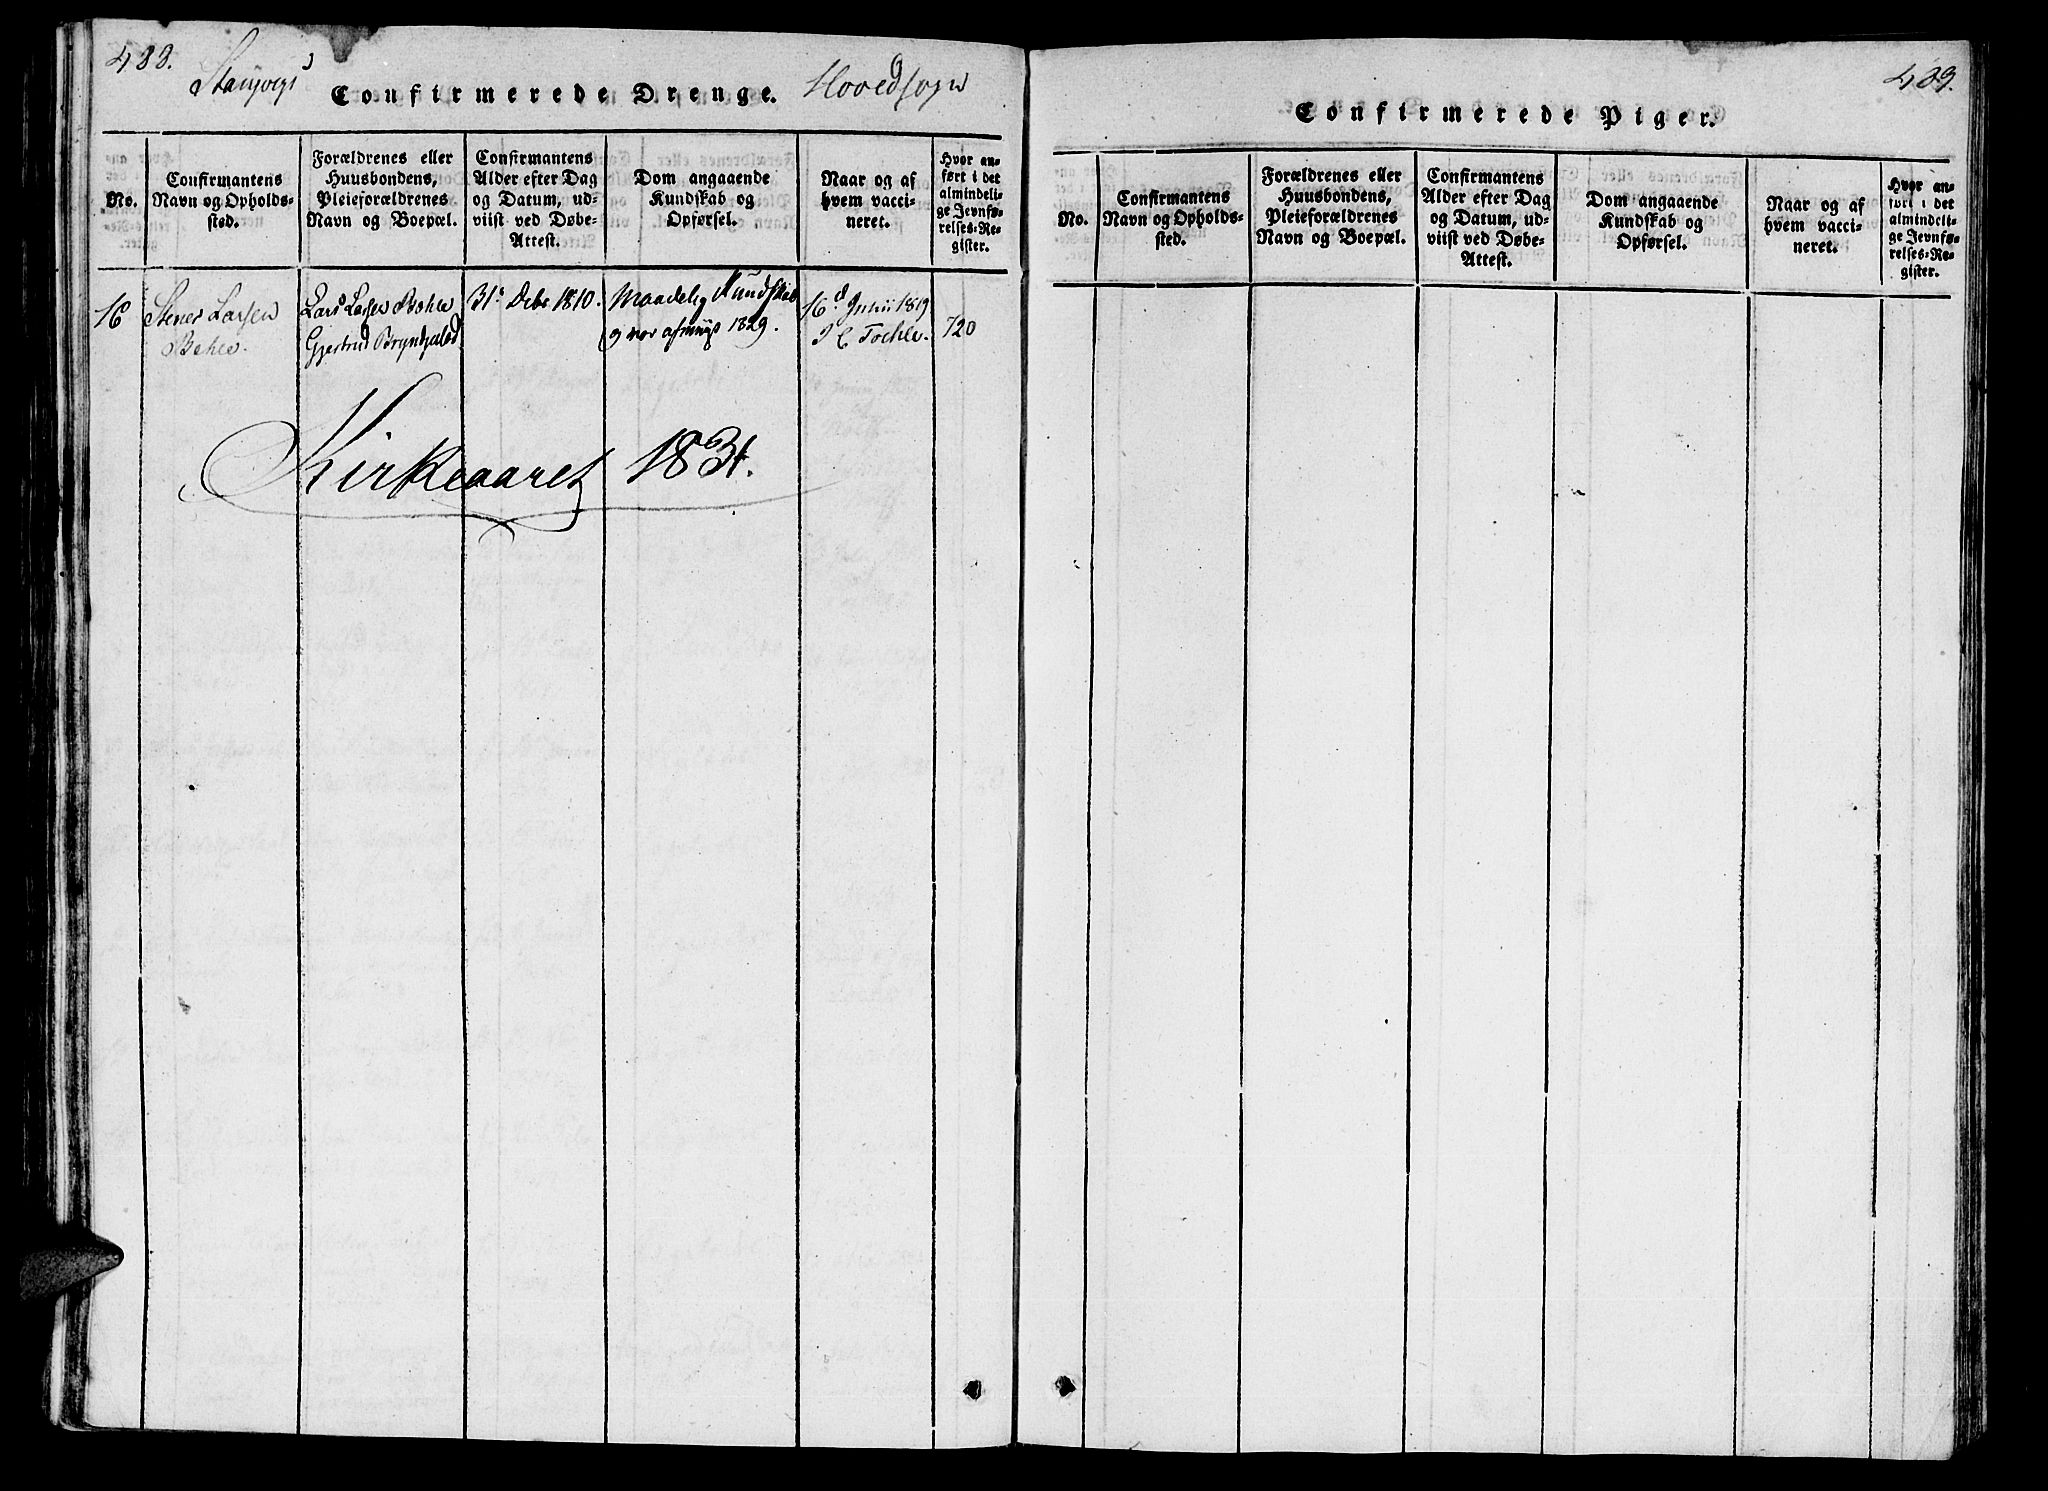 488.
Stangvigs
Confirmerede Drenge.
Hovedsogn
No.
Confirmantens
Navn og Opholds-
sted.
Forældrenes eller
Huusbondens,
Pleieforældrenes
Navn og Boepæl.
Confirmantens
Alder efter Dag
og Datum, ud-
viist ved Døbe-
Attest.
Dom angaaende
Kundskab og
Opførsel.
Naar og af
hvem vacci-
neret.
Hvor an-
ført i det
almindeli-
ge Jevnfø-
relses-Re-
gister.
16
Stener Larsen
Bøhle.
Lars Larsen Bøhle
Gjertrud
31. Debr 1810.
Maadelig Kundskab
1829.
16d Junii 1819
Tochle.
720
Kirkeaaret 1831.
489.
Confirmerede Piger.
No.
Confirmantens
Navn og Opholds-
sted.
Forældrenes eller
Huusbondens,
Pleieforældrenes
Navn og Boepæl.
Confirmantens
Alder efter Dag
og Datum, ud-
viist ved Døbe-
Attest.
Dom angaaende
Kundskab og
Opførsel.
Naar og af
hvem vacci-
neret.
Hvor an-
ført i det
almindeli-
ge Jevnfø-
relses-Re-
gister.